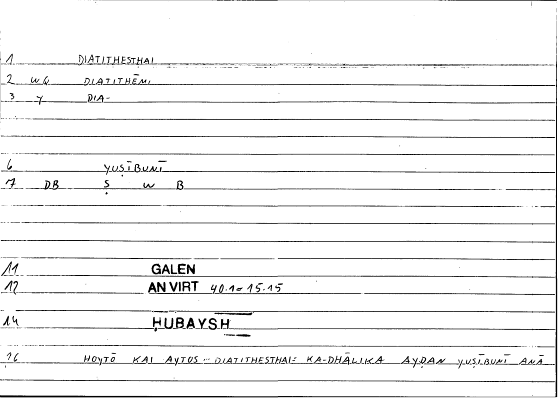 1 DIATITHESTHAI
2 w6 DIATITHĒMI
3 y DIA-
6 YUṢĪBUNĪ
7 DB Ṣ w B
11 GALEN
12 AN VIRT 40.1 = 15.15
14 ḤUBAYSH
16 HOYTŌ KAI AYTOS ... DIATITHESTHAI = KA-DHĀLIKA AYḌAN YUṢĪBUNĪ ANĀ